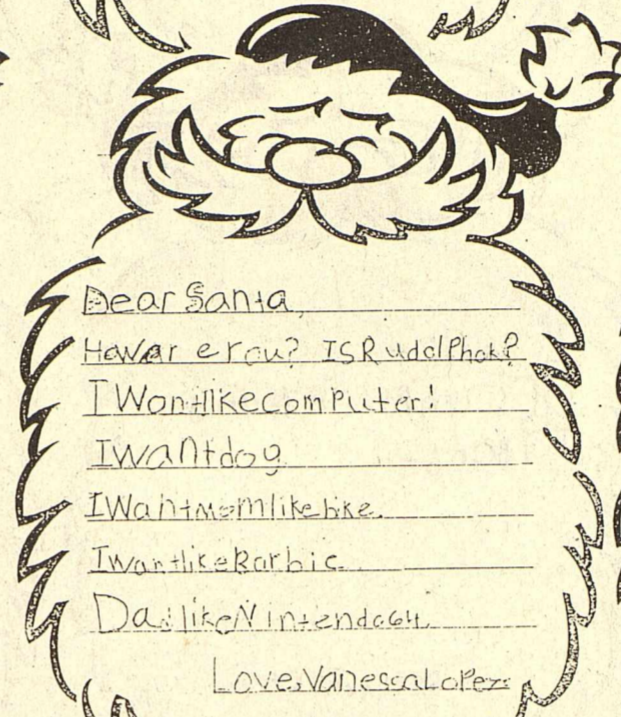 Dear Santa,
How are rou? IS Rudolph ok?
I Wont like computer!
I want dog
I Want mom like bike.
I want like Barbie.
Dad like Nintendo 64.
Love, Vanessa Lopez